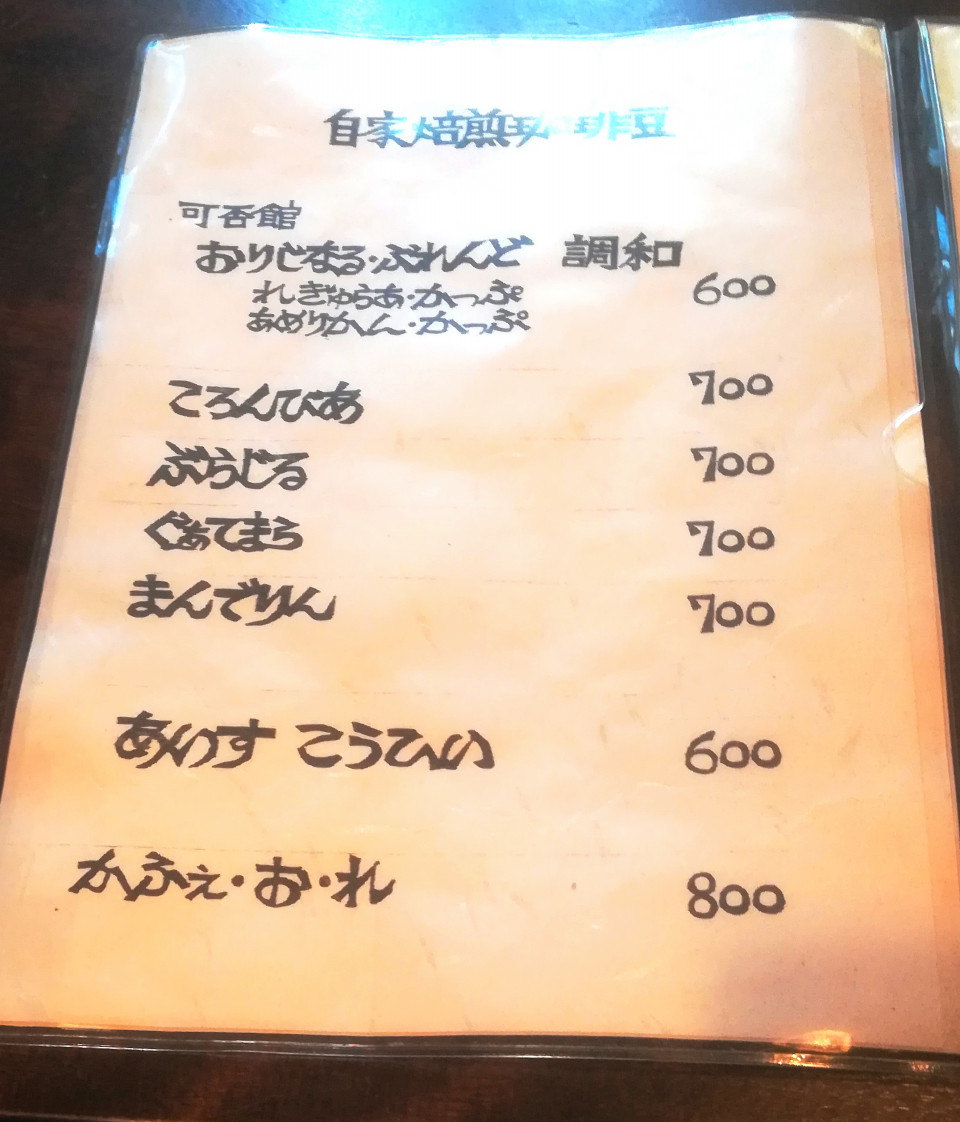 自家焙煎珈琲豆
可否館
おりじなる・ぶれんど 調和
600
れぎゅらあ・かっぷ
あめりかん・かっぷ
ころんびあ 700
ぶらじる 700
ぐぁてまら 700
まんでりん 700
あいす こうひい 600
かふぇ・お・れ 800